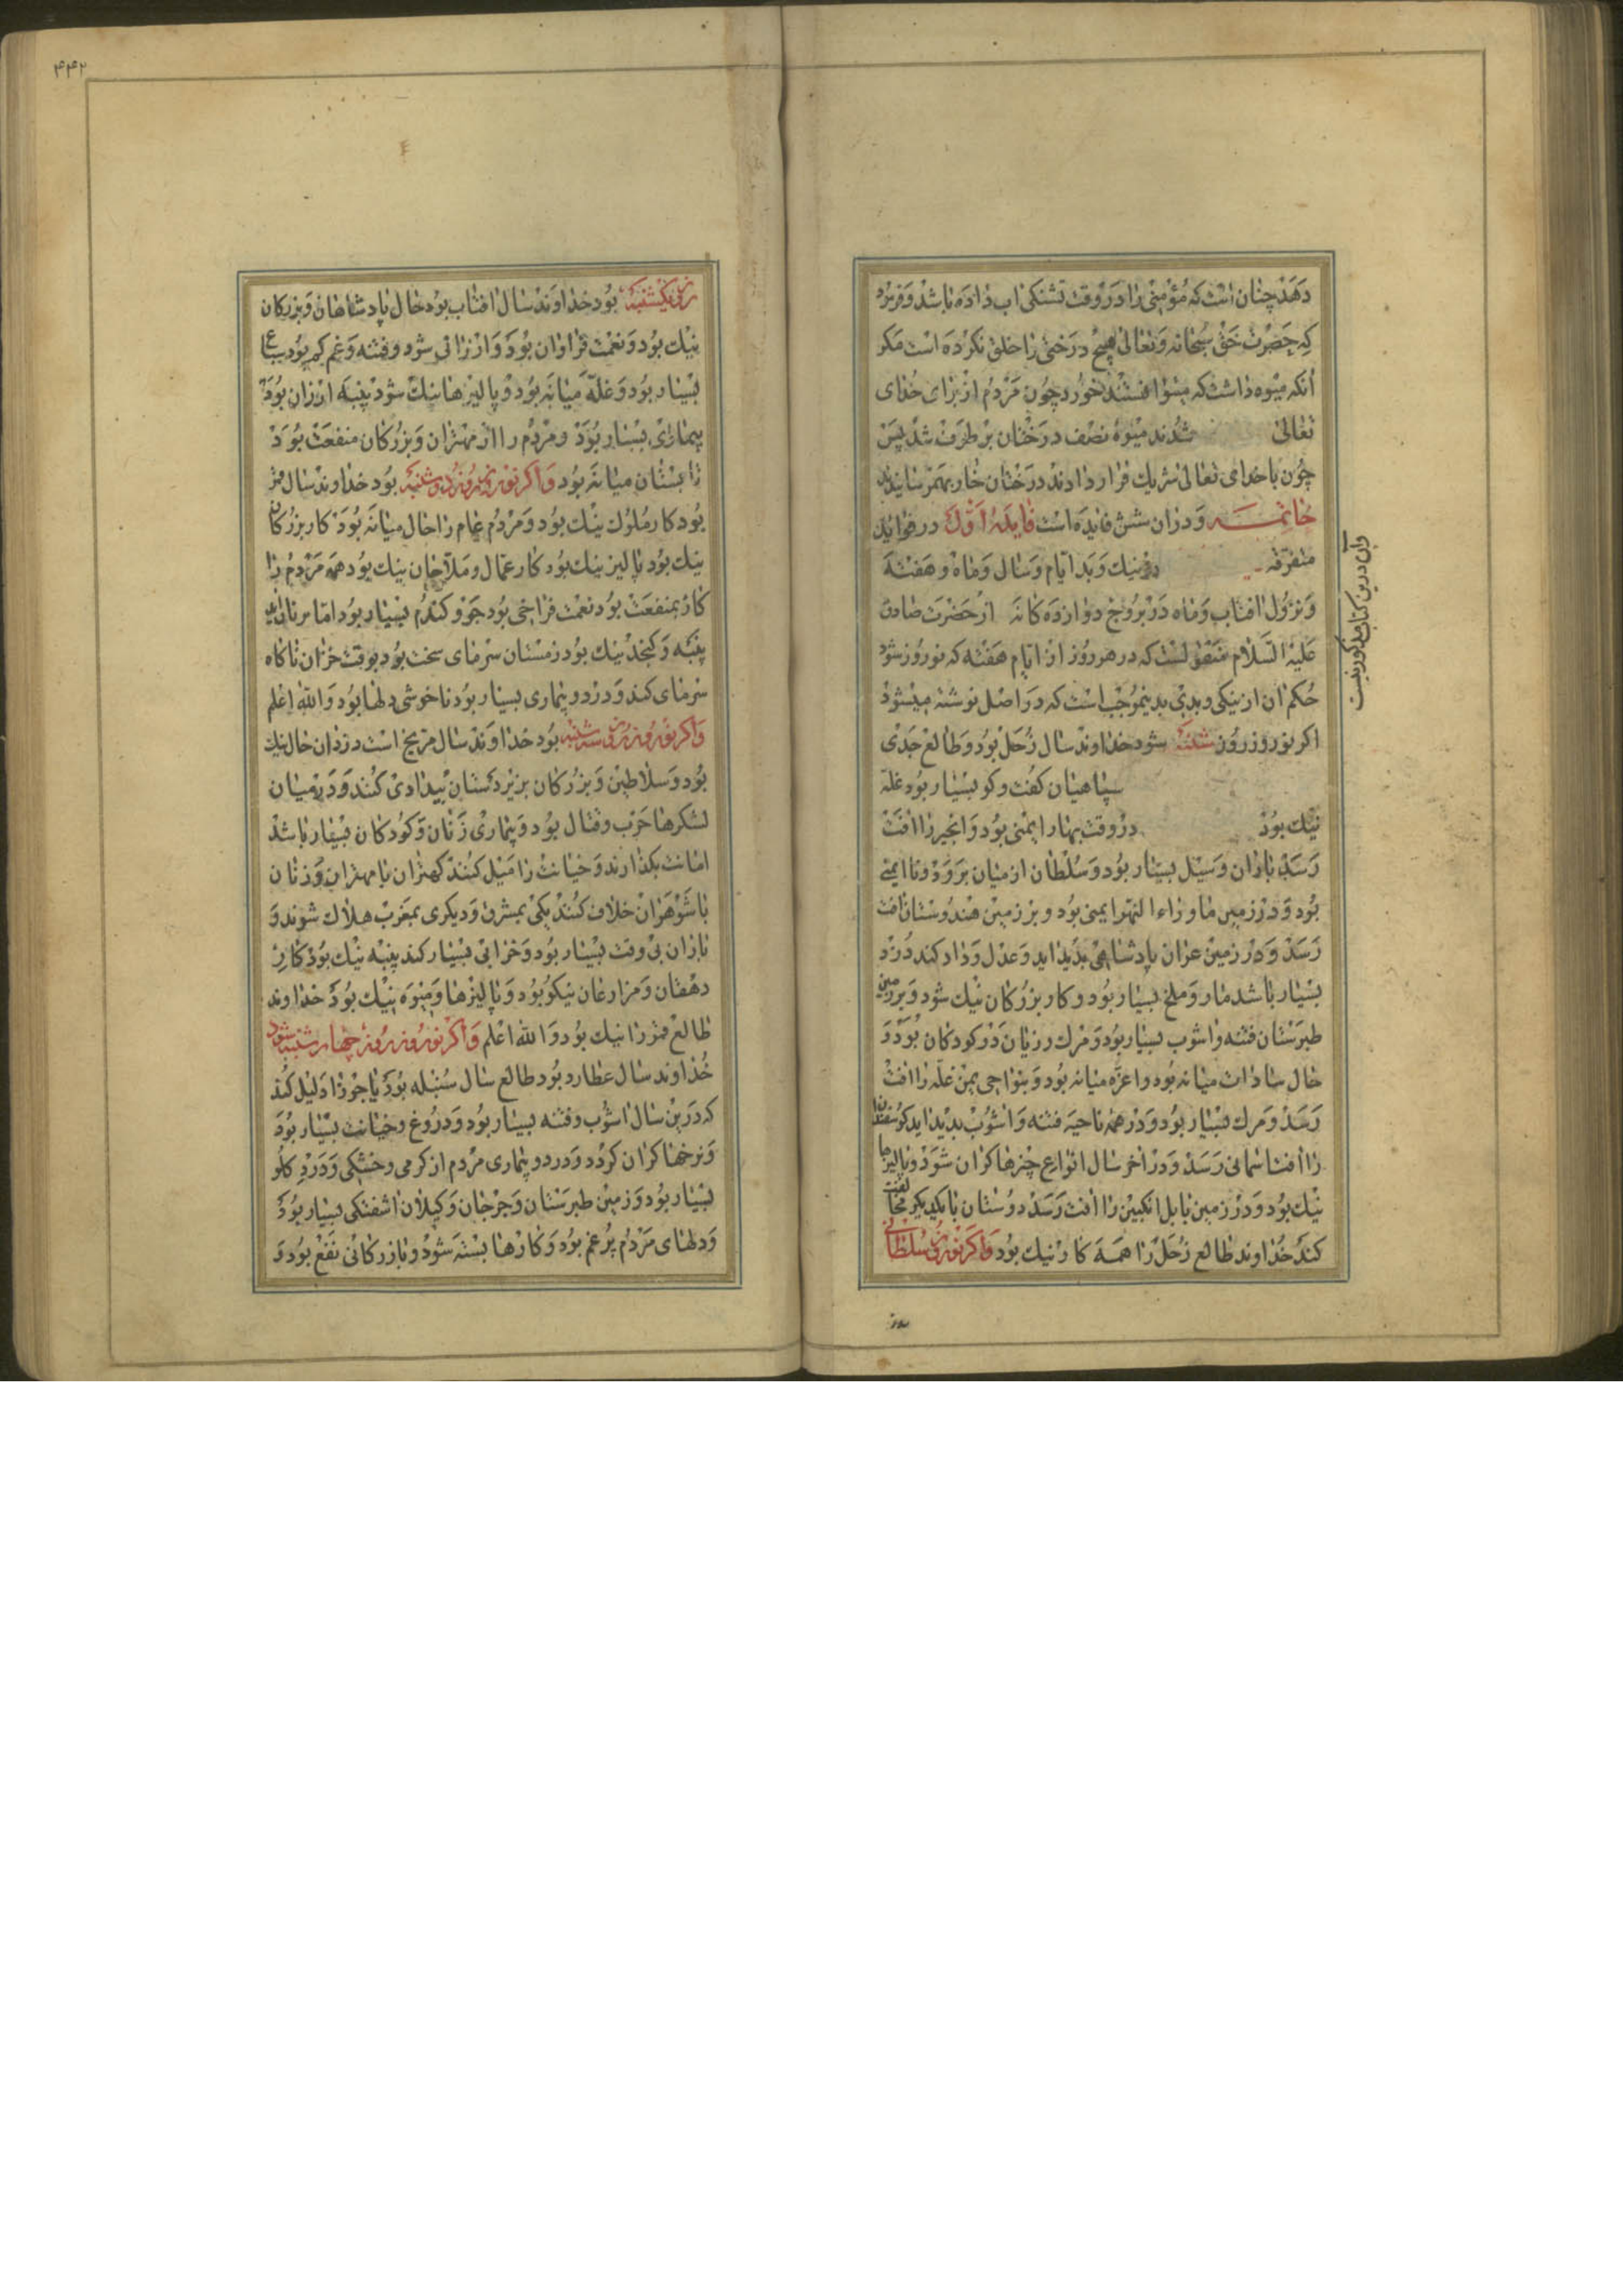 دهد چنان است که مؤمنی را در وقت تشنکی اب داده باشد و فرمود
که حضرت حق سبحانه و تعالی هیچ درختی را خلق نکرده است مکر
انکه میوه داشت که میتوانستند خورد چون مردم از برای خدای
تعالی شدند میوهٔ نصف درختان بر طرف شد پس
چون با خدای تعالی شریک قرار دادند درختان خار بهم رسانیدند
خاتمه و دران شش فایده است فایدهٔ اول در فواید
متفرقه در نیك و بد ایام و سال و ماه و هفته
و نزول افتاب و ماه در بروج دوازده کانه از حضرت صادق
علیه السلام منقولست که در هر روز از ایام هفته که نوروز شود
حکم ان از نیکی و بدی بدینموجب است که در اصل نوشته میشود
اکر نوروز روز شنبه شود خداوند سال زحل بود و طالع جدی
سپاهیان کفت و کو بسیار بود غله
نیك بود در وقت بهار ایمنی بود و انجیر را افت
رسد باران و سیل بسیار بود و سلطان از میان برود و نا ایمنی
بود و در زمین ماوراء النهر ایمنی بود و بر زمین هندوستان افت
رسد و در زمین عراق پادشاهی پدید اید و عدل و داد کند دزد
بسیار باشد مار و ملخ بسیار بود و کار بزرکان نیك شود و بر زمین
طبرستان فتنه و اشوب بسیار بود و مرك و زیان در کودکان بود و
حال سادات میانه بود و اعزه میانه بود و بنواحی یمن غله را افت
رسد و مرك بسیار بود و در همه ناحیه فتنه و اشوب پدید اید کوسفندان
را افت اسمانی رسد و در اخر سال انواع چیزها کران شود و پالیزها
نیك بود و در زمین بابل انکبین را افت رسد دوستان با یکدیکر مخالفت
کند خداوند طالع زحل را همه کار نیك بود و اکر نوروز سلطانی
وان درین کتاب مذکور نیست
روز
۴۴۲
روز یکشنبه بود خداوند سال افتاب بود حال پادشاهان و بزرکان
نیك بود و نعمت فراوان بود و ارزانی شود و فتنه و غم کم بود سباع
بسیار بود و غله میانه بود و پالیزها نیك شود پنبه ارزان بود
بیماری بسیار بود و مردم را از مهتران و بزرکان منفعت بود
تابستان میانه بود و اکر نوروز روز دوشنبه بود خداوند سال قمر
بود کار ملوك نیك بود و مردم عام را حال میانه بود کار بزرکان
نیك بود پالیز نیك بود کار عمال و ملاحان نیك بود همه مردم را
کار بمنفعت بود نعمت فراخی بود جو و کندم بسیار بود اما
پنبه و کنجد نیك بود زمستان سرمای سخت بود بوقت خزان ناکاه
سرمای کند و درد و بیماری بسیار بود ناخوشی دلها بود و الله اعلم
و اکر نوروز روز سه شنبه بود خداوند سال مریخ است دزدان حال نیك
بود و سلاطین و بزرکان بر زیردستان بیدادی کنند و در میان
لشکرها حرب و قتال بود و بیماری زنان و کودکان بسیار باشد
امانت بکذارند و خیانت را میل کنند کهتران با مهتران و زنان
با شوهران خلاف کنند یکی بمشرق و دیکری بمغرب هلاك شوند و
باران بی وقت بسیار بود و خرابی بسیار کند پنبه نیك بود کار
دهقان و مزارعان نیکو بود و پالیزها و میوه نیك بود خداوند
طالع قمر را نیك بود و الله اعلم و اکر نوروز روز چهارشنبه شود
خداوند سال عطارد بود طالع سال سنبله بود یا جوزا دلیل کند
که درین سال اشوب و فتنه بسیار بود و دروغ و خیانت بسیار بود
و نرخها کران کردد و درد و بیماری مردم از کرمی و خشکی و درد کلو
بسیار بود و زمین طبرستان و جرجان و کیلان اشفتکی بسیار بود
و دلهای مردم پر غم بود و کارها بسته شود و بازرکانی نفع بود و